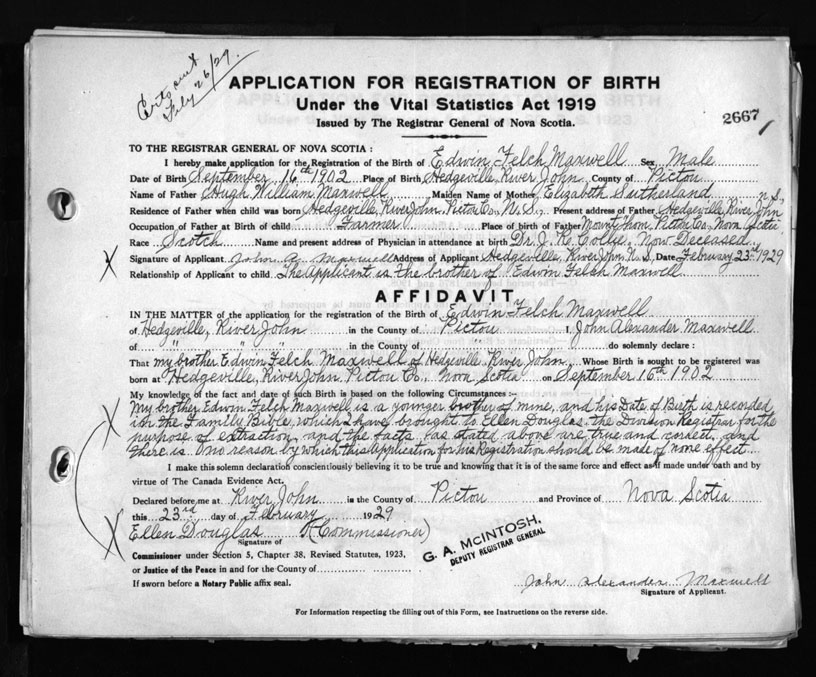 Feby 26/29.
APPLICATION FOR REGISTRATION OF BIRTH
Under the Vital Statistics Act 1919
Issued by The Registrar General of Nova Scotia.
2667
TO THE REGISTRAR GENERAL OF NOVA SCOTIA :
I hereby make application for the Registration of the Birth of Edwin Felch Maxwell Sex Male
Date of Birth September 16th 1902 Place of Birth Hedgeville, River John County of Pictou
Name of Father Hugh William Maxwell Maiden Name of Mother Elizabeth Sutherland N.S.,
Residence of Father when child was born Hedgeville, River John, Pictou Co., N.S., Present address of Father Hedgeville, River John
Occupation of Father at Birth of child Farmer Place of birth of Father Mount Thom, Pictou Co., Nova Scotia
Race Scotch Name and present address of Physician in attendance at birth Dr. J. K. Collie, Now Deceased
Signature of Applicant John A. Maxwell Address of Applicant Hedgeville, River John, N.S., Date February 23rd 1929
Relationship of Applicant to child The Applicant is the brother of Edwin Felch Maxwell
AFFIDAVIT
IN THE MATTER of the application for the registration of the Birth of Edwin Felch Maxwell
of Hedgeville, River John in the County of Pictou I, John Alexander Maxwell
of " " " in the County of " do solemnly declare :
That my brother Edwin Felch Maxwell of Hedgeville, River John, Whose Birth is sought to be registered was
born at Hedgeville, River John Pictou Co., Nova Scotia on September 16th 1902
My knowledge of the fact and date of such Birth is based on the following Circumstances :—
My brother Edwin Felch Maxwell is a younger brother of mine, and his Date of Birth is recorded
in the Family Bible, which I have brought to Ellen Douglas the Division Registrar for the
purpose of extraction, and the facts as stated above are true and correct, and
there is no reason by which this Application for his Registration should be made of none effect.
I make this solemn declaration conscientiously believing it to be true and knowing that it is of the same force and effect as if made under oath and by
virtue of The Canada Evidence Act.
Declared before me at River John in the County of Pictou and Province of Nova Scotia
this 23rd day of February 1929
Ellen Douglas (A Commissioner)
Signature of
Commissioner under Section 5, Chapter 38, Revised Statutes, 1923,
or Justice of the Peace in and for the County of
If sworn before a Notary Public affix seal.
G. A. McINTOSH,
DEPUTY REGISTRAR GENERAL
John Alexander Maxwell
Signature of Applicant.
For Information respecting the filling out of this Form, see Instructions on the reverse side.